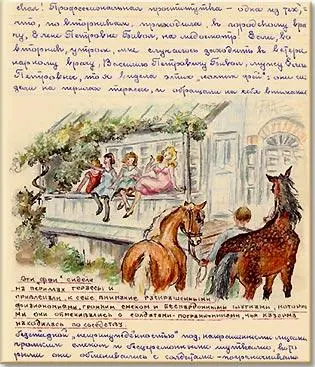 Профессиональная проституток - одна из тех,
что, по вторникам, приходила в городскому вра
чу, Елене Петровне Бивол, на медосмотр! Если, во
вторник, утром, мне случалось заходить к ветери
нарному врачу, Василию Петровичу Бивол, мужу Елен
Петровны, то я видела этих : они си
дели на перилах террасы, и обращали на себя внимание
Эти „феи" сидели
на перилах террасы и
привлекали к себе внимание раскрашенными
физиономиями, громким смехом и беспардонными шутками, которы
ми они обменивались с солдатами-пограничниками, чья казарма
находилась по соседству.
под накрашенными лицами,
громким смехом и бесцеремонными шутками, кото
рыми они обменивались с солдатами-пограничниками